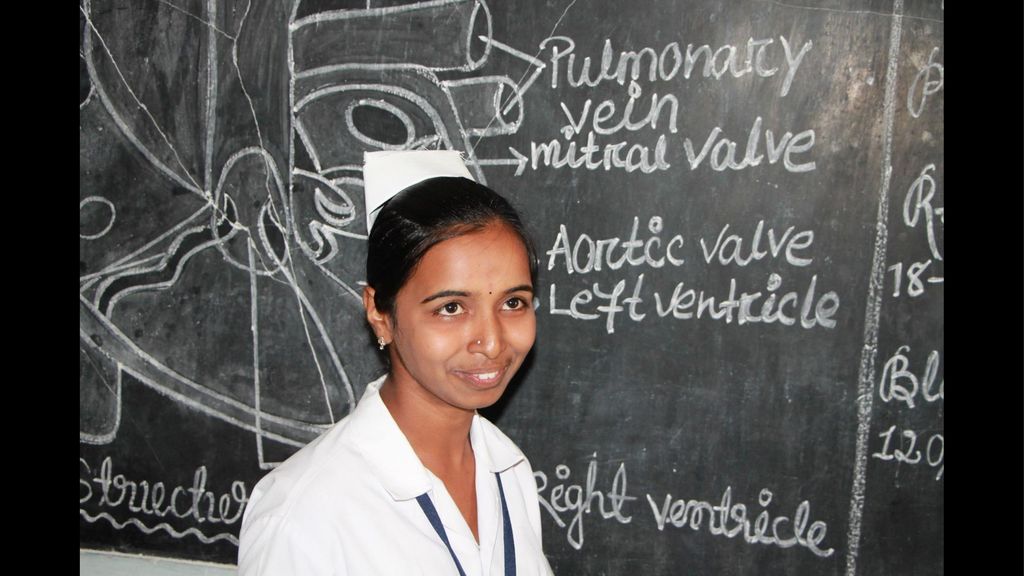 Pulmonary
vein
mitral valve
Aortic valve
Left ventricle
Right ventricle
P
R-
18-
Bl
120